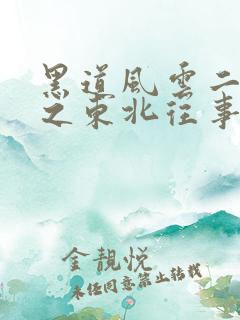 黑道風雲二
之東北往事
金靚悅
未经同意禁止转载